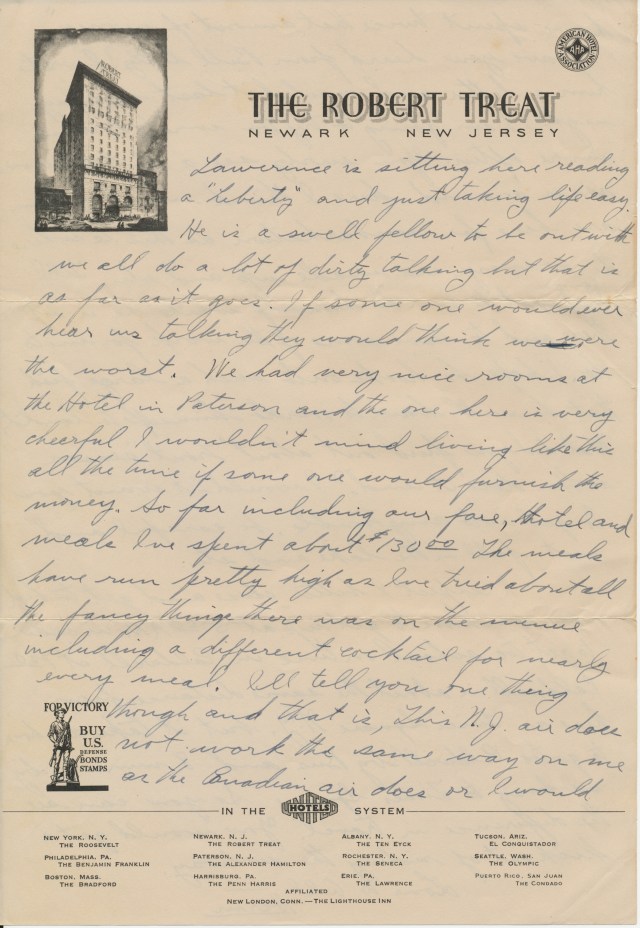 ROBERT TREAT
AMERICAN HOTEL ASSOCIATION
AHA
THE ROBERT TREAT
NEWARK NEW JERSEY
Lawerence is sitting here reading
a "Liberty" and just taking life easy.
He is a swell fellow to be out with
we all do a lot of dirty talking but that is
as far as it goes. If some one would ever
hear us talking they would think we were
the worst. We had very nice rooms at
the Hotel in Paterson and the one here is very
cheerful I wouldn't mind living like this
all the time if some one would furnish the
money. So far including our fare, Hotel and
meals I've spent about $130.00 The meals
have run pretty high as I've tried about all
the fancy things there was on the menue
including a different cocktail for nearly
every meal. I'll tell you one thing
though and that is, This N.J. air does
not work the same way on me
as the Canadian air does or I would
FOR VICTORY
BUY
U.S.
DEFENSE
BONDS
STAMPS
IN THE UNITED HOTELS SYSTEM
NEW YORK, N. Y.
THE ROOSEVELT
PHILADELPHIA, PA.
THE BENJAMIN FRANKLIN
BOSTON, MASS.
THE BRADFORD
NEWARK, N. J.
THE ROBERT TREAT
PATERSON, N. J.
THE ALEXANDER HAMILTON
HARRISBURG, PA.
THE PENN HARRIS
ALBANY, N. Y.
THE TEN EYCK
ROCHESTER, N. Y.
THE SENECA
ERIE, PA.
THE LAWRENCE
TUCSON, ARIZ.
EL CONQUISTADOR
SEATTLE, WASH.
THE OLYMPIC
PUERTO RICO, SAN JUAN
THE CONDADO
AFFILIATED
NEW LONDON, CONN.—THE LIGHTHOUSE INN